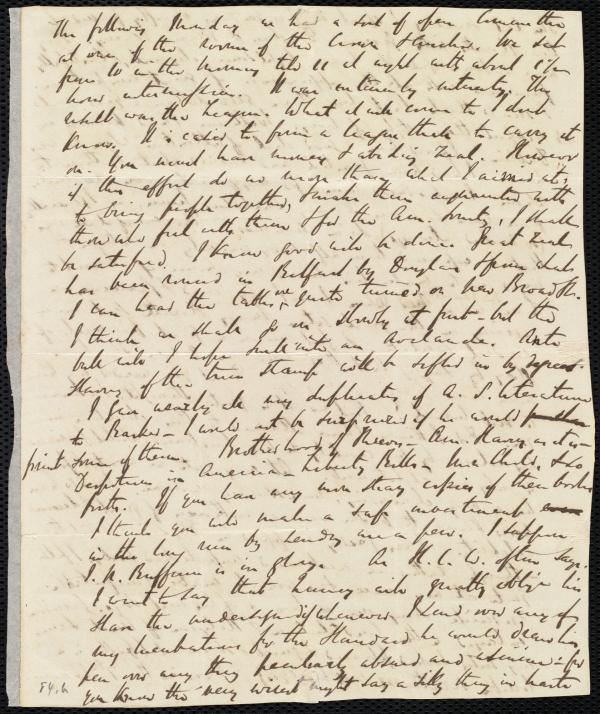 The following Monday we had a sort of open Committee
at one of the rooms of the Crown & Anchor. We sat
from 10 in the morning till 11 at night with about
hour intermission. It was intensely interesting. This
was the League. What it will come to I don't
know. It is easier to form a league than to carry it
on. You must have money & abiding zeal. However
if this effort do no more than what I aimed at,
to bring people together, & make them acquainted with
those who feel with them & for the Am. Society, I shall
be satisfied. I know good will be done. Great zeal
has been roused in Belfast by Douglass & from what
I can hear the tables are quite turned on New Broad St.
I think we shall go on slowly at first - but the
ball will I hope swell into an avalanche. Anti
Slavery of the true stamp will be sifted in by
I gave nearly all my duplicates of A. S. literature
to Barker - I would not be surprised if he would
print some of them. Brotherhood of Thieves - Am. Slavery as it is -
Despotism in America - Liberty Bells - Mrs Child, &c
forth. If you have any more stray copies of these books
I think you will make a safe investment
in the long run by sending me a few. I suppose
J. N. Buffum is in glory. As H. C. W. often says.
I want to say that Quincy will greatly oblige his
Slave the undersigned if whenever I send over any of
my lucubrations for the Standard he would draw his
pen over any thing peculiarly absurd and asinine - for
you know the very wisest might say a silly thing in haste
84.6